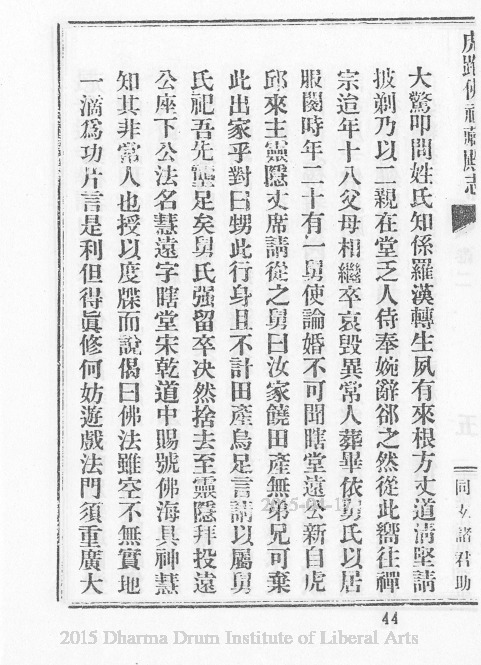 虎跑佛祖藏殿志
同文諸君助
大驚叩問姓氏知係羅漢轉生夙有來根方丈道清堅請
披剃乃以二親在堂乏人侍奉婉辭郤之然從此嚮往禪
宗迨年十八父母相繼卒哀毀異常人葬畢依舅氏以居
服闋時年二十有一舅使論婚不可聞瞎堂遠公新自虎
邱來主靈隱丈席請從之舅曰汝家饒田產無弟兄可棄
此出家乎對曰甥此行身且不計田產烏足言請以屬舅
氏祀吾先塋足矣舅氏强留卒决然捨去至靈隱拜投遠
公座下公法名慧遠字瞎堂宋乾道中賜號佛海具神慧
知其非常人也授以度牒而說偈曰佛法雖空不無實地
一滴爲功片言是利但得眞修何妨遊戲法門須重廣大
44
2015 Dharma Drum Institute of Liberal Arts